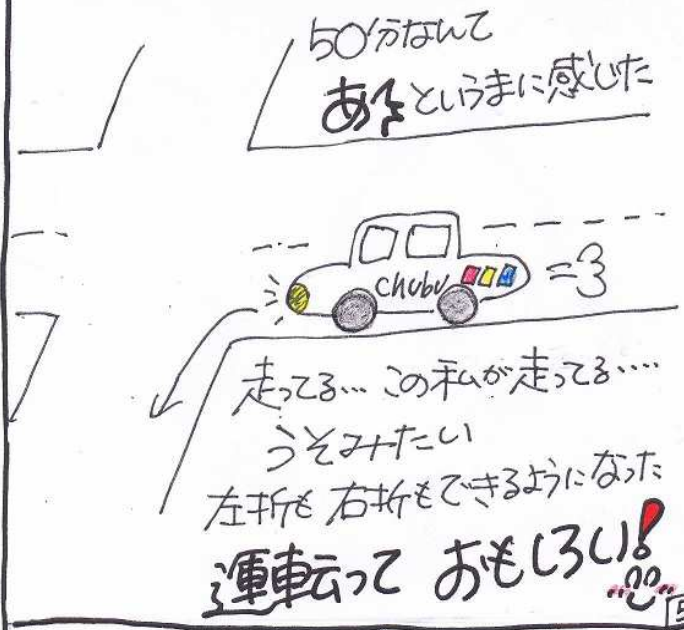 50分なんて
あっというまに感じた
chubu
走ってる… この私が走ってる‥‥
うそみたい
左折も 右折もできるようになった
運転って おもしろい!
5